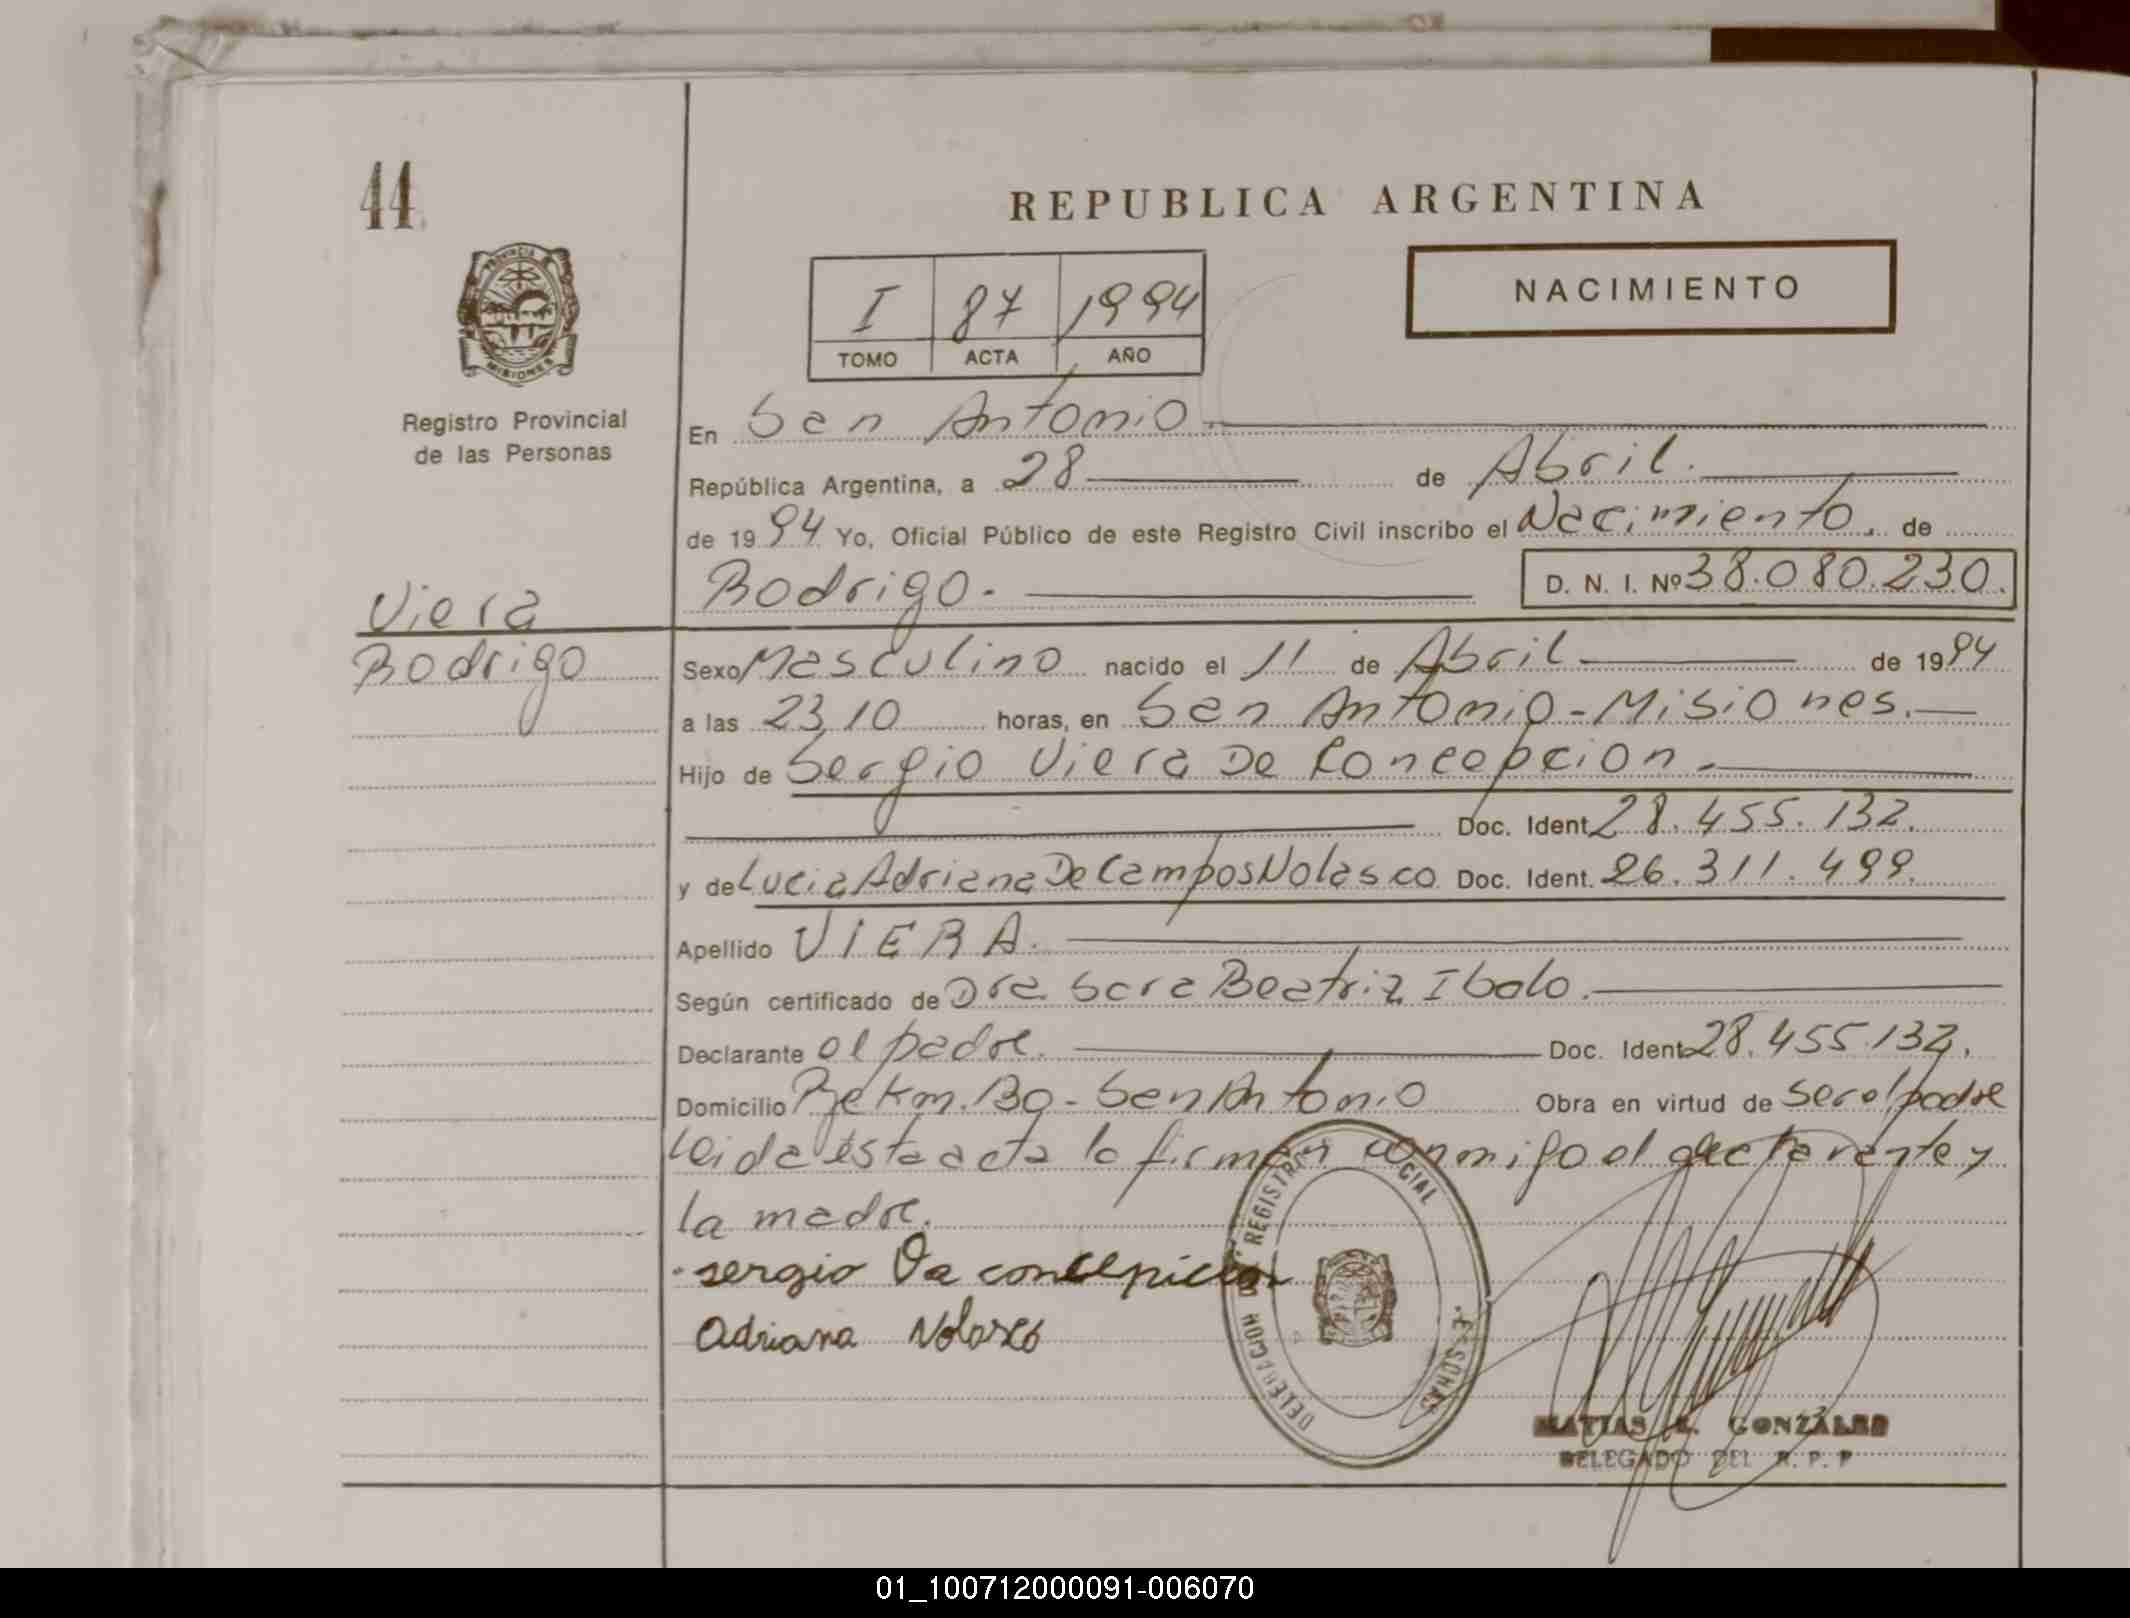 44
REPUBLICA ARGENTINA
PROVINCIA
MISIONES
NACIMIENTO
I 87 1994
TOMO ACTA AÑO
Registro Provincial
de las Personas
En San Antonio
República Argentina, a 28 de Abril.
de 1994 Yo, Oficial Público de este Registro Civil inscribo el Nacimiento, de
Rodrigo. D. N. I. Nº 38.080.230.
Viera
Rodrigo
Sexo Masculino nacido el 11 de Abril de 1994
a las 23,10 horas, en San Antonio - Misiones.
Hijo de Sergio Viera De Concepcion.
Doc. Ident. 28.455.132.
y de Lucia Adriana De Campos Nolasco Doc. Ident. 26.311.499.
Apellido VIERA.
Según certificado de Dra. Sara Beatriz Ibalo.
Declarante el padre. Doc. Ident. 28.455.132.
Domicilio Km. 130 - San Antonio Obra en virtud de ser el padre
Leida esta acta la firman conmigo el declarante y
la madre.
sergio Da concepicion
Adriana Nolasco
MATIAS GONZALEZ
DELEGADO DEL R. P. P
01_100712000091-006070